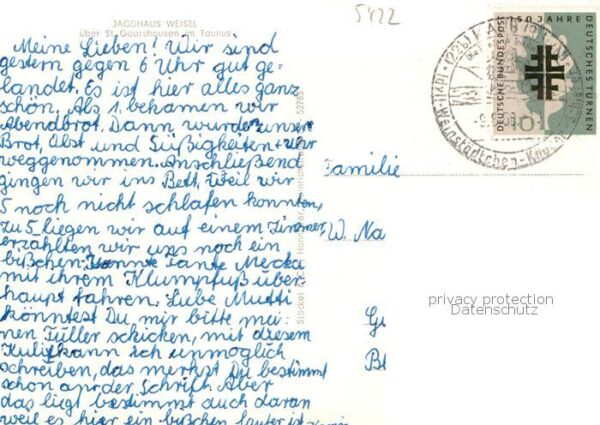 JAGDHAUS WEISEL
über St. Goarshausen im Taunus
5422
Meine Lieben! Wir sind
gestern gegen 6 Uhr gut ge-
landet. Es ist hier alles ganz
schön. Als 1. bekamen wir
Abendbrot. Dann wurde unser
Brot, Obst und Süßigkeiten + Uhr
weggenommen. Anschließend
gingen wir ins Bett. Weil wir
5 noch nicht schlafen konnten,
zu 5 liegen wir auf einem Zimmer,
erzählten wir uns noch ein
bißchen. Konnte Tante Mecka
mit ihrem Klumpfuß über
haupt fahren. Liebe Mutti
könntest Du mir bitte mei-
nen Füller schicken, mit diesem
Kuli kann ich unmöglich
schreiben, das merkst Du bestimmt
schon an der Schrift. Aber
das liegt bestimmt auch daran
weil es hier ein bißchen lauter ist
Familie
W. Na
Ge
Bl
150 JAHRE
DEUTSCHES TURNEN
DEUTSCHE BUNDESPOST
10
privacy protection
Datenschutz